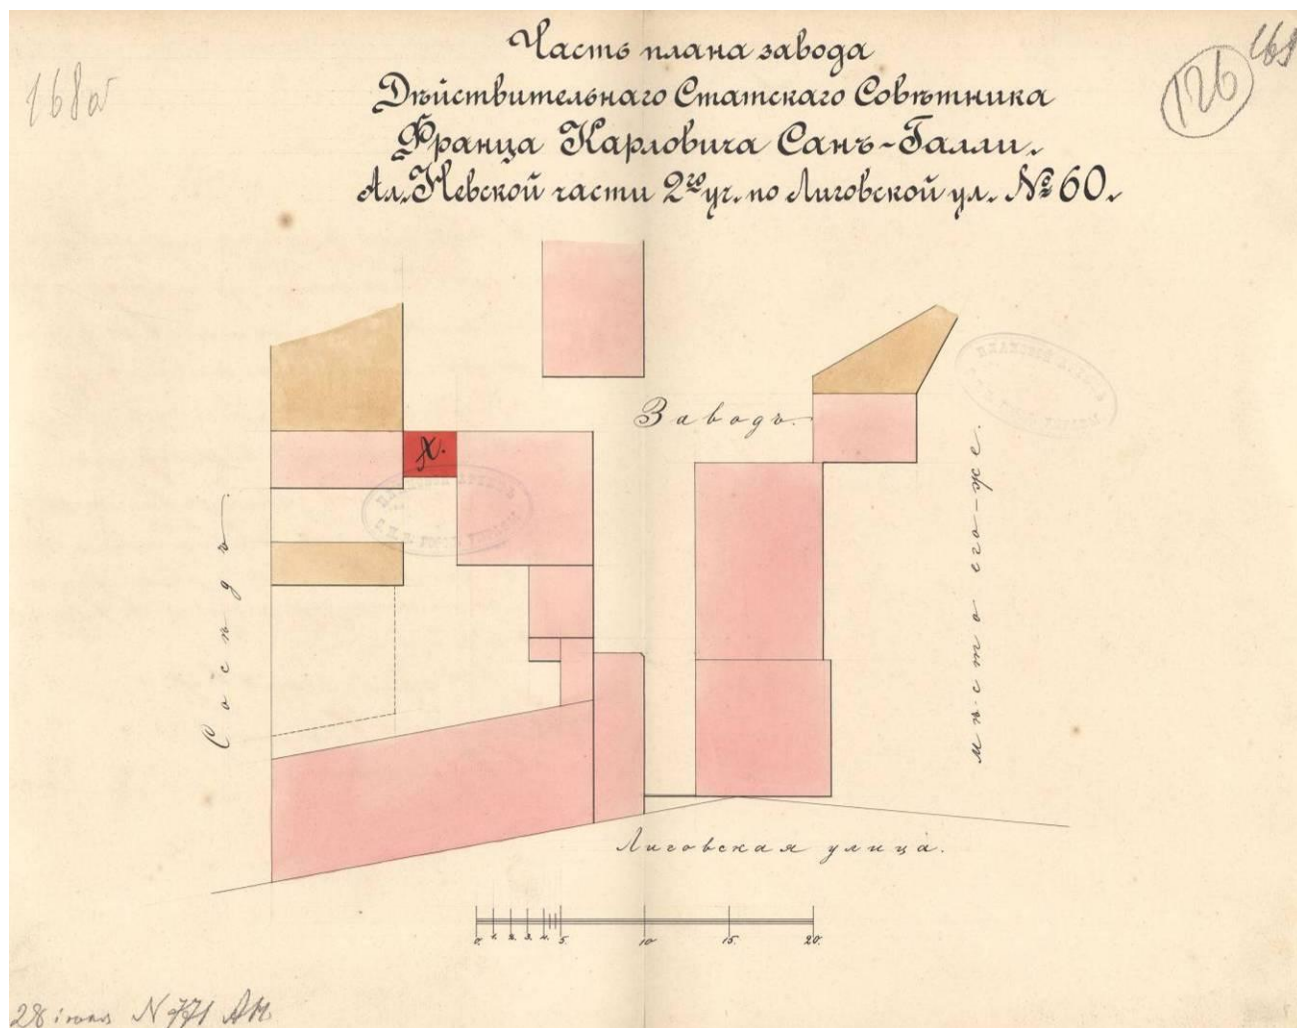 Часть плана завода
Дѣйствительнаго Статскаго Совѣтника
Франца Карловича Санъ-Галли.
Ал. Невской части 2го уч. по Лиговской ул. № 60.
168а
126
168
Заводъ.
Х.
Сосѣдъ.
мѣсто его-же.
Лиговская улица.
0. 1. 2. 3. 4. 5. 10 15. 20.
28 N 771